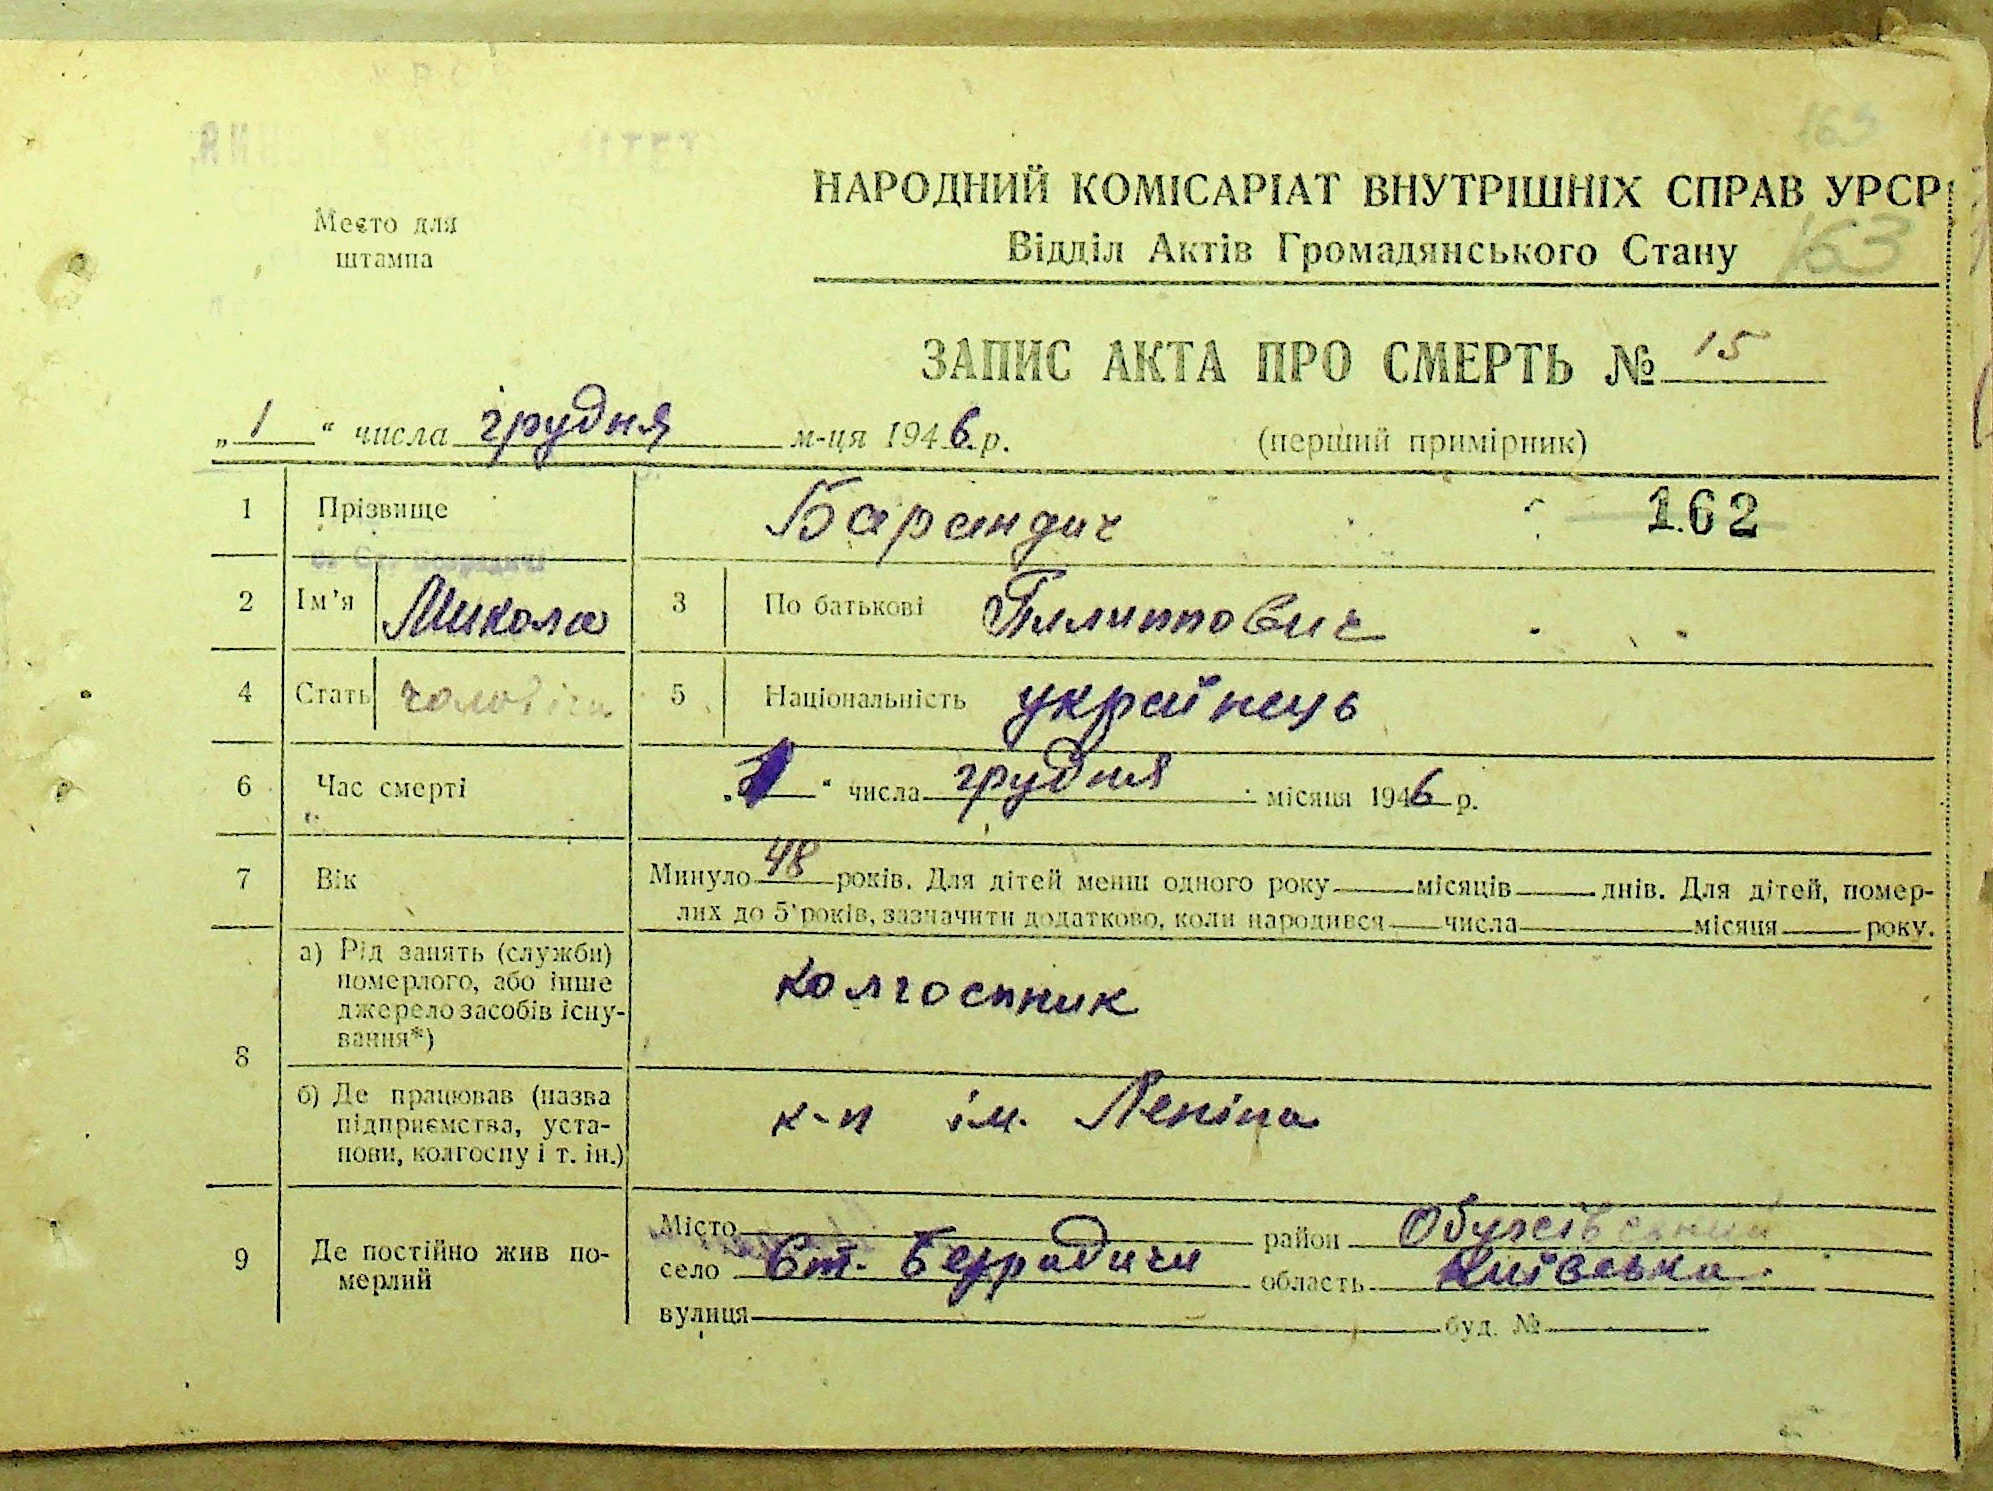 163
НАРОДНИЙ КОМІСАРІАТ ВНУТРІШНІХ СПРАВ УРСР
Место для штампа
Відділ Актів Громадянського Стану 163
ЗАПИС АКТА ПРО СМЕРТЬ № 15
„1“ числа грудня м-ця 1946 р. (перший примірник)
1 Прізвище Барандич 162
2 Ім'я Микола 3 По батькові Пилиппович
4 Стать чоловіча 5 Національність українець
6 Час смерті „1“ числа грудня місяця 1946 р.
7 Вік Минуло 48 років. Для дітей менш одного року місяців днів. Для дітей, помер-
лих до 5 років, зазначити додатково, коли народився числа місяця року.
8 а) Рід занять (служби)
померлого, або інше
джерело засобів існу-
вання*)
колгоспник
б) Де працював (назва
підприємства, уста-
нови, колгоспу і т. ін.)
к-п ім. Леніна
9 Де постійно жив по-
мерлий
Місто район Обухівський
село Ст. Безрадичи область Київська
вулиця буд. №